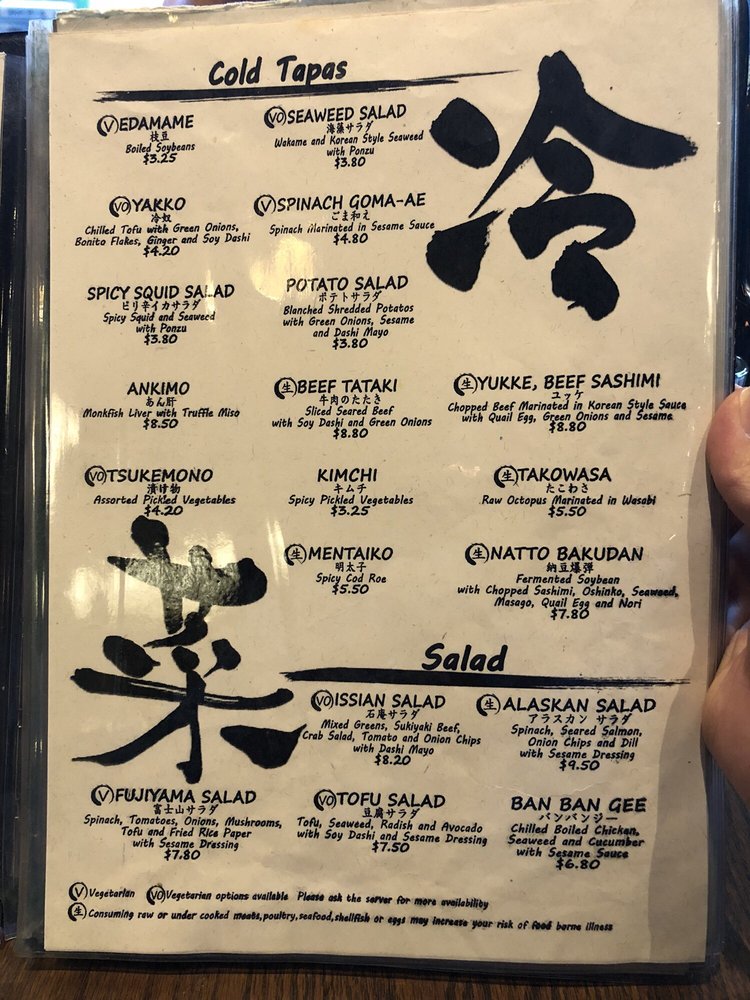 Cold Tapas
冷
Ⓥ EDAMAME
枝豆
Boiled Soybeans
$3.25
VO SEAWEED SALAD
海藻サラダ
Wakame and Korean Style Seaweed
with Ponzu
$3.80
VO YAKKO
冷奴
Chilled Tofu with Green Onions,
Bonito Flakes, Ginger and Soy Dashi
$4.20
Ⓥ SPINACH GOMA-AE
ごま和え
Spinach Marinated in Sesame Sauce
$4.80
SPICY SQUID SALAD
ピリ辛イカサラダ
Spicy Squid and Seaweed
with Ponzu
$3.80
POTATO SALAD
ポテトサラダ
Blanched Shredded Potatos
with Green Onions, Sesame
and Dashi Mayo
$3.80
ANKIMO
あん肝
Monkfish Liver with Truffle Miso
$8.50
生 BEEF TATAKI
牛肉のたたき
Sliced Seared Beef
with Soy Dashi and Green Onions
$8.80
生 YUKKE, BEEF SASHIMI
ユッケ
Chopped Beef Marinated in Korean Style Sauce
with Quail Egg, Green Onions and Sesame
$8.80
VO TSUKEMONO
漬け物
Assorted Pickled Vegetables
$4.20
KIMCHI
キムチ
Spicy Pickled Vegetables
$3.25
生 TAKOWASA
たこわさ
Raw Octopus Marinated in Wasabi
$5.50
生 MENTAIKO
明太子
Spicy Cod Roe
$5.50
生 NATTO BAKUDAN
納豆爆弾
Fermented Soybean
with Chopped Sashimi, Oshinko, Seaweed,
Masago, Quail Egg and Nori
$7.80
菜
Salad
VO ISSIAN SALAD
石庵サラダ
Mixed Greens, Sukiyaki Beef,
Crab Salad, Tomato and Onion Chips
with Dashi Mayo
$8.20
生 ALASKAN SALAD
アラスカン サラダ
Spinach, Seared Salmon,
Onion Chips and Dill
with Sesame Dressing
$9.50
Ⓥ FUJIYAMA SALAD
富士山サラダ
Spinach, Tomatoes, Onions, Mushrooms,
Tofu and Fried Rice Paper
with Sesame Dressing
$7.80
VO TOFU SALAD
豆腐サラダ
Tofu, Seaweed, Radish and Avocado
with Soy Dashi and Sesame Dressing
$7.50
BAN BAN GEE
バンバンジー
Chilled Boiled Chicken,
Seaweed and Cucumber
with Sesame Sauce
$6.80
Ⓥ Vegetarian VO Vegetarian options available Please ask the server for more availability
生 Consuming raw or under cooked meats,poultry,seafood,shellfish or eggs may increase your risk of food borne illness